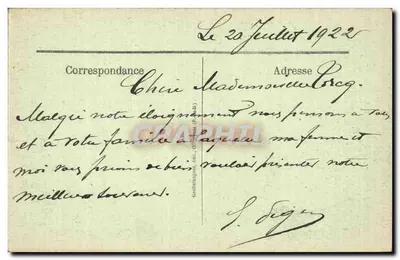 Le 20 Juillet 1922
Correspondance
Adresse
Chère Mademoiselle
Malgré notre éloignement nous pensons à
et à votre famille à ma femme et
moi vous prions de bien vouloir présenter notre
meilleur souvenir
CARTE